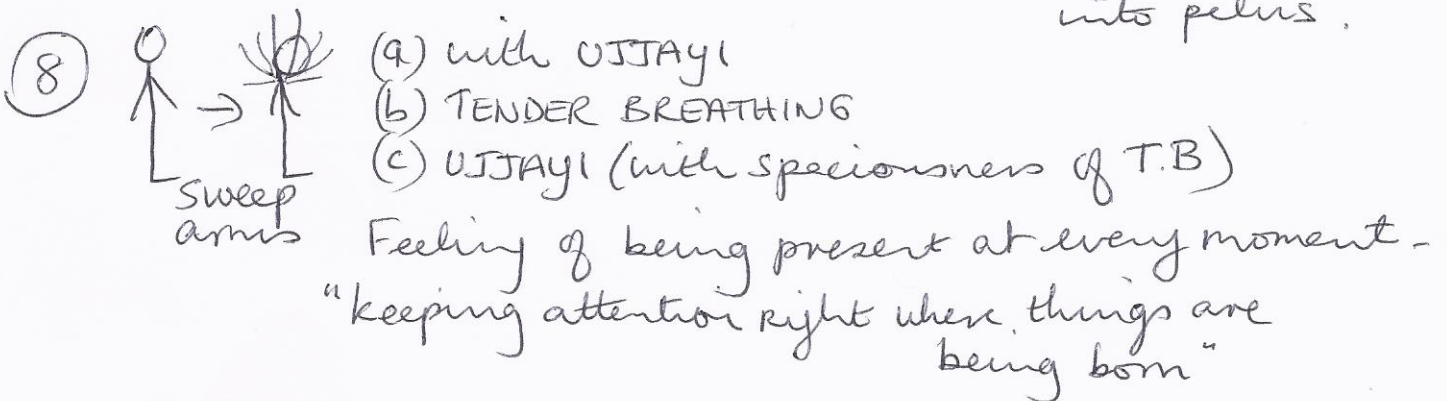 into pelvis.
⑧ → (a) with UJJAYI
(b) TENDER BREATHING
(c) UJJAYI (with spaciousness of T.B)
Sweep
arms
Feeling of being present at every moment -
"keeping attention right where things are
being born"